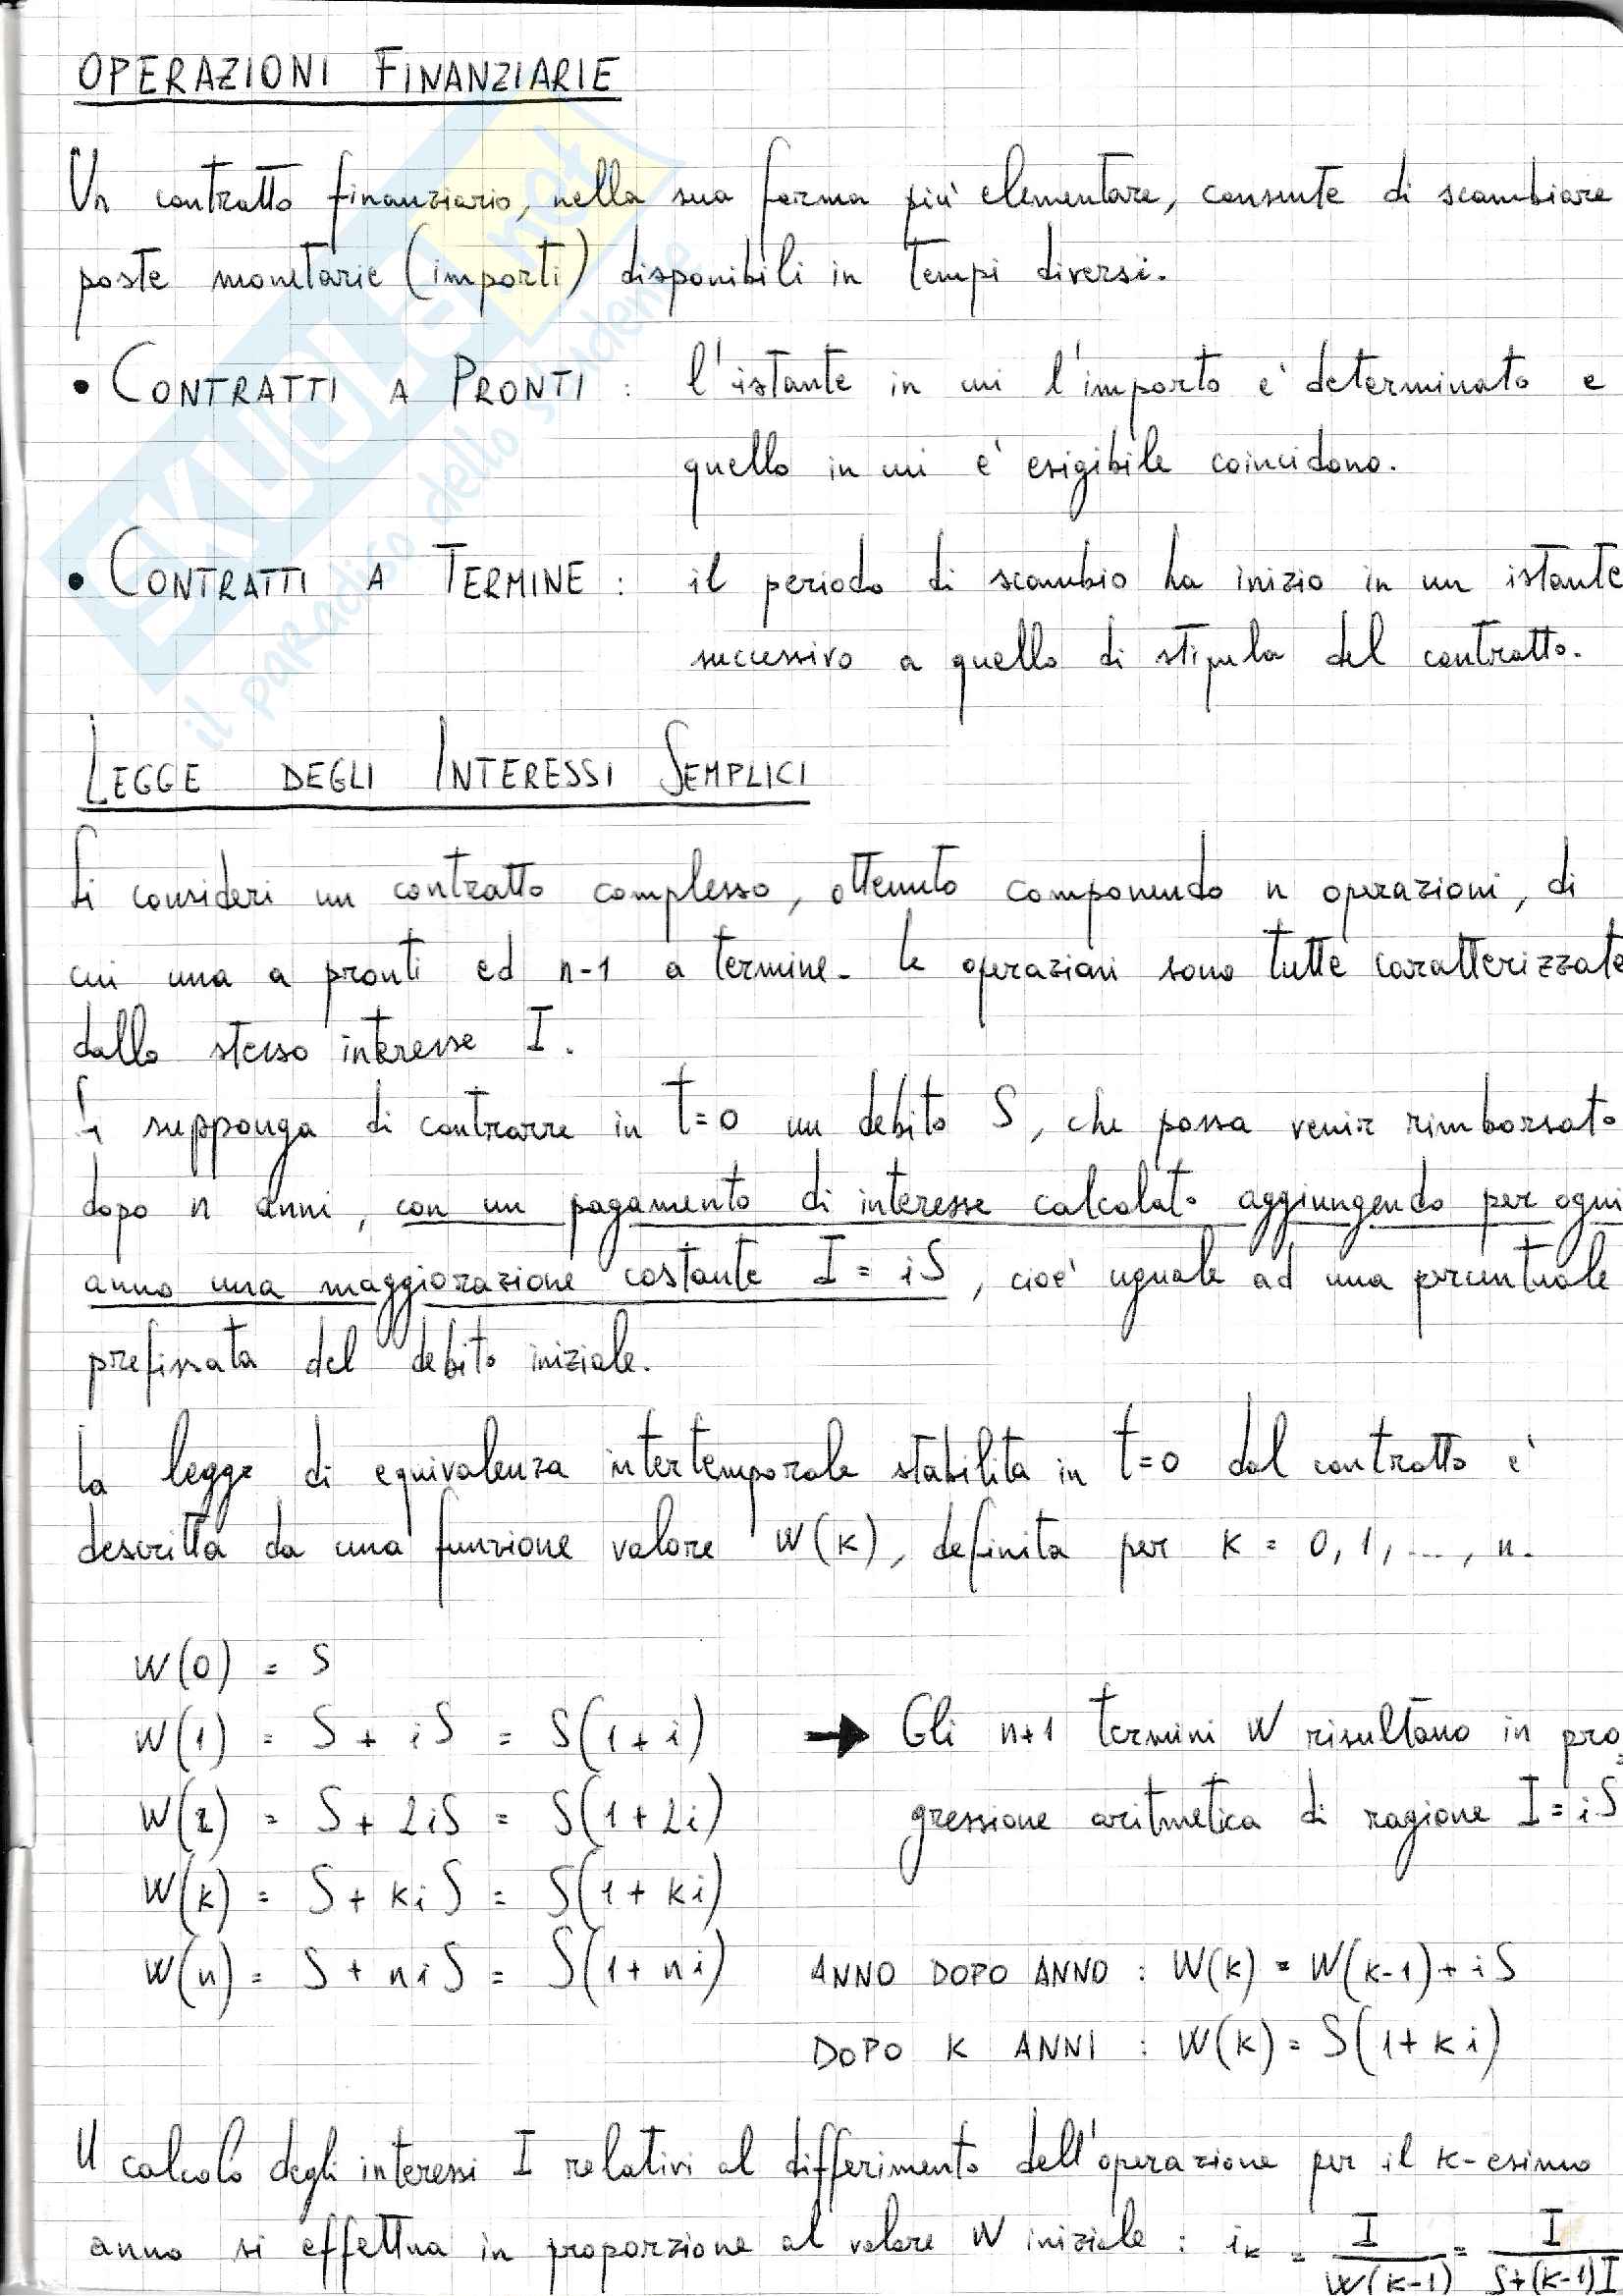 OPERAZIONI FINANZIARIE
Un contratto finanziario, nella sua forma più elementare, consente di scambiare
poste monetarie (importi) disponibili in tempi diversi.
• CONTRATTI A PRONTI : l'istante in cui l'importo è determinato e
quello in cui è esigibile coincidono.
• CONTRATTI A TERMINE : il periodo di scambio ha inizio in un istante
successivo a quello di stipula del contratto.
LEGGE DEGLI INTERESSI SEMPLICI
Si consideri un contratto complesso, ottenuto componendo n operazioni, di
cui una a pronti ed n-1 a termine. Le operazioni sono tutte caratterizzate
dallo stesso interesse I.
Si supponga di contrarre in t=0 un debito S, che possa venir rimborsato
dopo n anni, con un pagamento di interesse calcolato aggiungendo per ogni
anno una maggiorazione costante I = iS, cioè uguale ad una percentuale
prefissata del debito iniziale.
La legge di equivalenza intertemporale stabilita in t=0 dal contratto è
descritta da una funzione valore W(k), definita per k = 0, 1, ..., n.
W(0) = S
W(1) = S + iS = S(1+i) → Gli n+1 termini W risultano in pro=
W(2) = S + 2iS = S(1+2i) gressione aritmetica di ragione I = iS
W(k) = S + kiS = S(1+ki)
W(n) = S + niS = S(1+ni) ANNO DOPO ANNO : W(k) = W(k-1) + iS
DOPO K ANNI : W(k) = S(1+ki)
Il calcolo degli interessi I relativi al differimento dell'operazione per il k-esimo
anno si effettua in proporzione al valore W iniziale : iₖ = I / W(k-1) = I / S+(k-1)I
SKUOLA.net
il paradiso dello studente